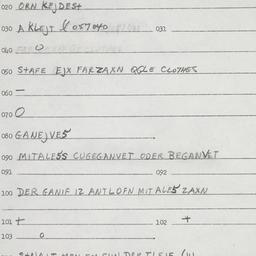 020 ORN KEJDEST
030 A KLEJT 057040 031
040 O
050 STAFE EJX FARZAXN OGLE CLOTHES
060 —
070 O
080 GANEJVES
090 MITALESS CUGEGANVET ODER BEGANVET
091 092
100 DER GANIF IZ ANTLOFN MIT ALES ZAXN
101 + 102 +
103 o